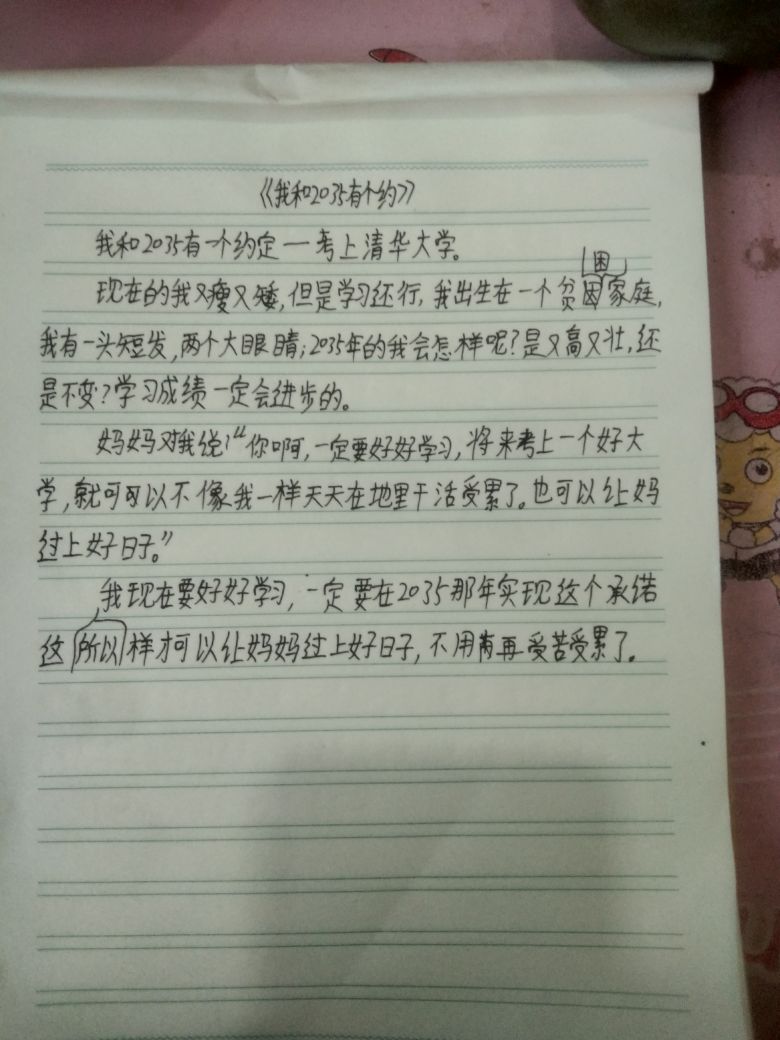 《我和2035有个约》
我和2035有一个约定一考上清华大学。
现在的我又瘦又矮,但是学习还行,我出生在一个贫困家庭,
我有一头短发,两个大眼睛;2035年的我会怎样呢?是又高又壮,还
是不变?学习成绩一定会进步的。
妈妈对我说:“你啊,一定要好好学习,将来考上一个好大
学,就可可以不像我一样天天在地里干活受累了。也可以让妈
过上好日子。”
所以我现在要好好学习,一定要在2035那年实现这个承诺
这样才可以让妈妈过上好日子,不用再受苦受累了。